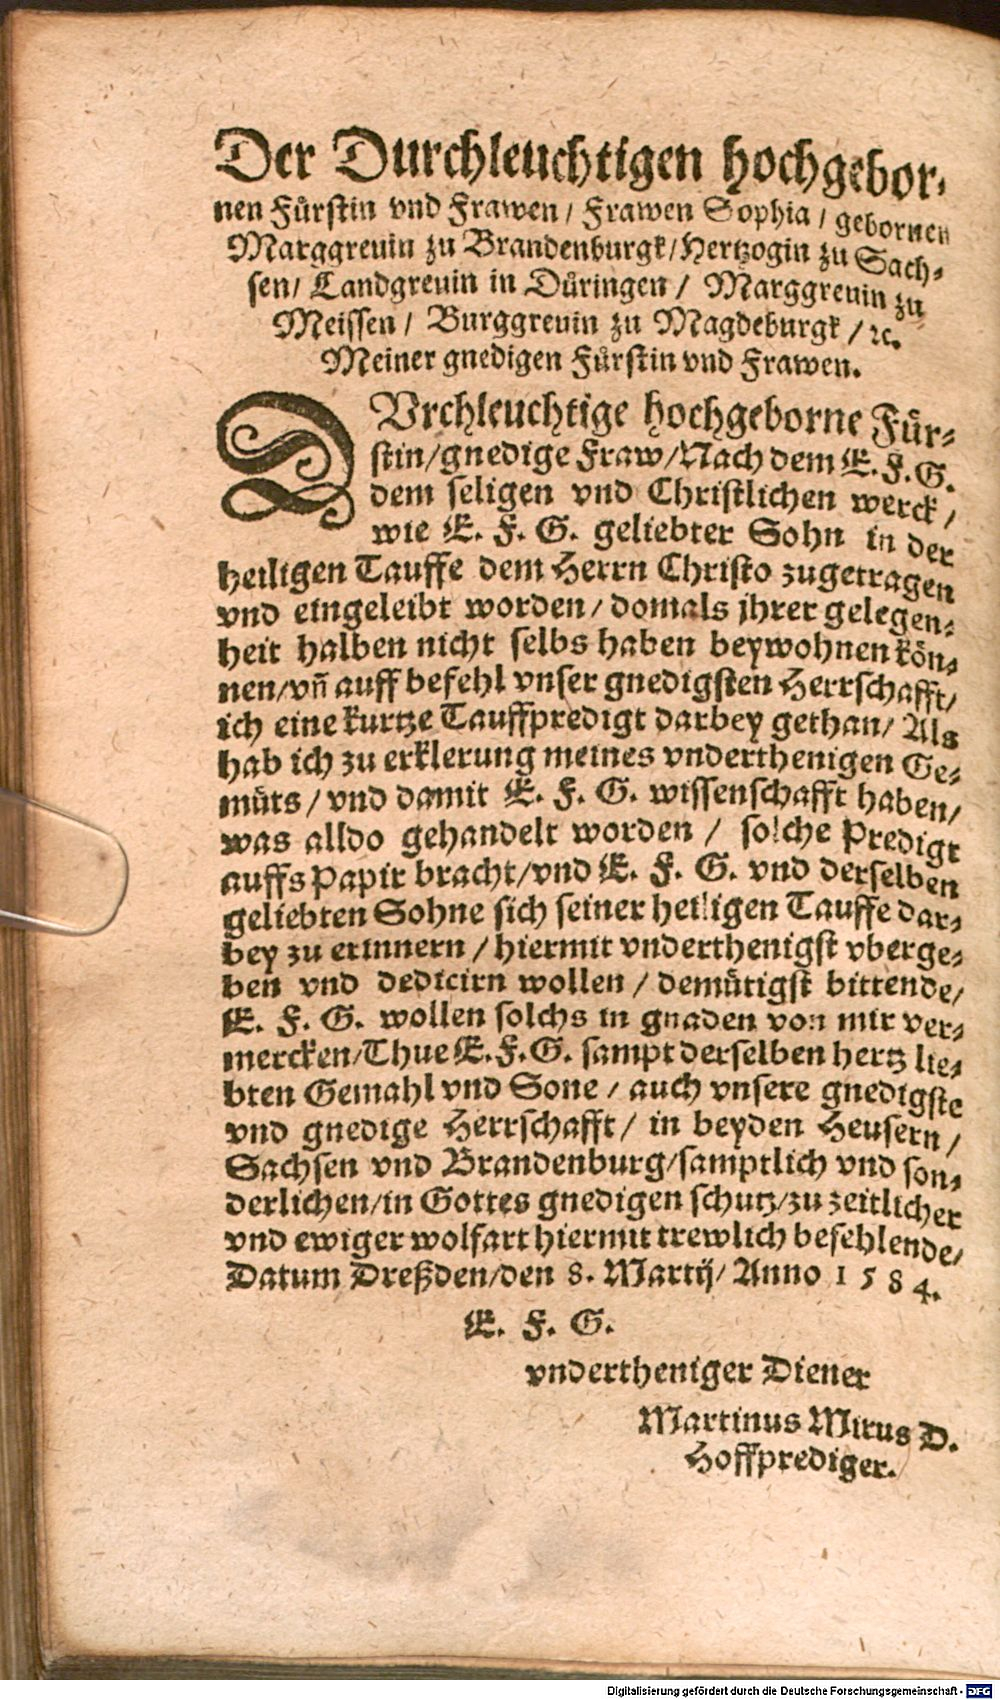 Der Durchleuchtigen hochgebor⸗
nen Fuͤrstin vnd Frawen / Frawen Sophia / gebornen
Marggreuin zu Brandenburgk / Hertzogin zu Sach⸗
sen / Landgreuin in Duͤringen / Marggreuin zu
Meissen / Burggreuin zu Magdeburgk / ꝛc.
Meiner gnedigen Fuͤrstin vnd Frawen.
DVrchleuchtige hochgeborne Fuͤr⸗
stin / gnedige Fraw / Nach dem E. F. G.
dem seligen vnd Christlichen werck /
wie E. F. G. geliebter Sohn in der
heiligen Tauffe dem Herrn Christo zugetragen
vnd eingeleibt worden / domals jhrer gelegen⸗
heit halben nicht selbs haben beywohnen koͤn⸗
nen / vñ auff befehl vnser gnedigsten Herrschafft /
ich eine kurtze Tauffpredigt darbey gethan / Als
hab ich zu erklerung meines vnderthenigen Ge⸗
muͤts / vnd damit E. F. G. wissenschafft haben /
was alldo gehandelt worden / solche Predigt
auffs Papir bracht / vnd E. F. G. vnd derselben
geliebten Sohne sich seiner heiligen Tauffe dar⸗
bey zu erinnern / hiermit vnderthenigst vberge⸗
ben vnd dedicirn wollen / demuͤtigst bittende /
E. F. G. wollen solchs in gnaden von mir ver⸗
mercken / Thue E. F. G. sampt derselben hertz lie⸗
bten Gemahl vnd Sone / auch vnsere gnedigste
vnd gnedige Herrschafft / in beyden Heusern /
Sachsen vnd Brandenburg / samptlich vnd son⸗
derlichen / in Gottes gnedigen schutz / zu zeitlicher
vnd ewiger wolfart hiermit trewlich befehlende /
Datum Dreßden / den 8. Martij / Anno 1584.
E. F. G.
vndertheniger Diener
Martinus Mirus D.
Hoffprediger.
Digitalisierung gefördert durch die Deutsche Forschungsgemeinschaft - DFG